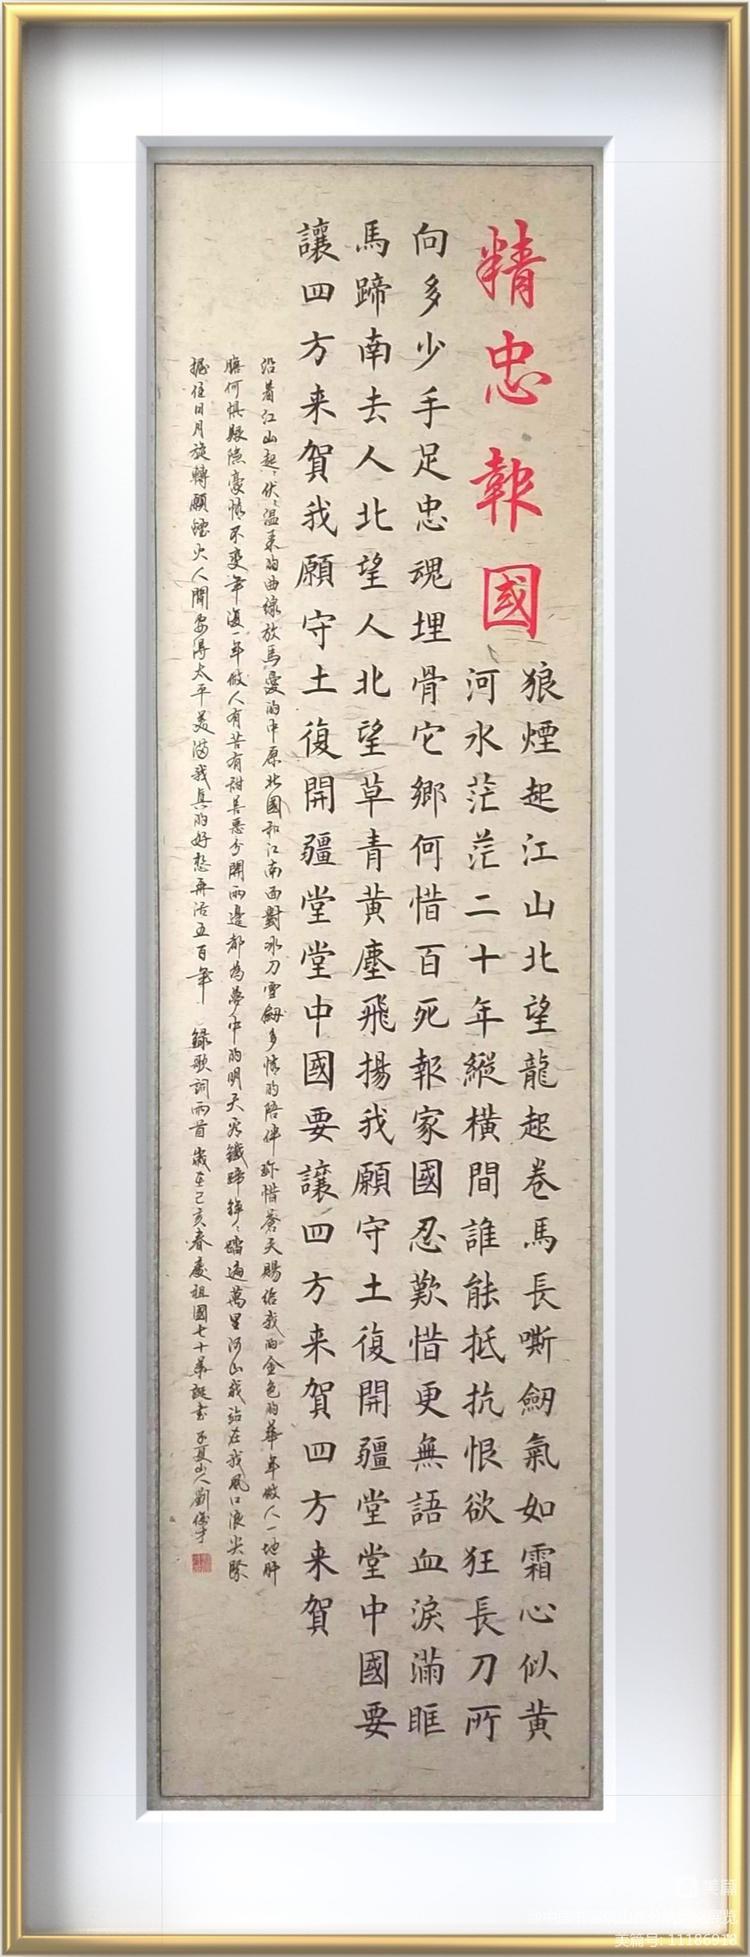 精忠報國
狼煙起江山北望龍起卷馬長嘶劒氣如霜心似黄
河水茫茫二十年縱横間誰能抵抗恨欲狂長刀所
向多少手足忠魂埋骨它鄉何惜百死報家國忍歎惜更無語血淚滿眶
馬蹄南去人北望人北望草青黄塵飛揚我願守土復開疆堂堂中國要
讓四方来賀我願守土復開疆堂堂中國要讓四方来賀四方来賀
沿着江山起、伏、温柔的曲線放馬愛的中原北國和江南面對冰刀雪劒多情的陪伴珎惜蒼天賜给我的金色的華年做人一地肝
膽何惧艱險豪情不變年復一年做人有苦有甜善惡分開兩邊都為夢中的明天看鐵蹄錚、踏遍萬里河山我站在我風口浪尖緊
握住日月旋轉願煙火人間安得太平美滿我真的好想再活五百年 録歌詞兩首 歲在己亥春慶祖國七十華誕書 子夏山人劉俊才
美篇
美篇号: 11186918